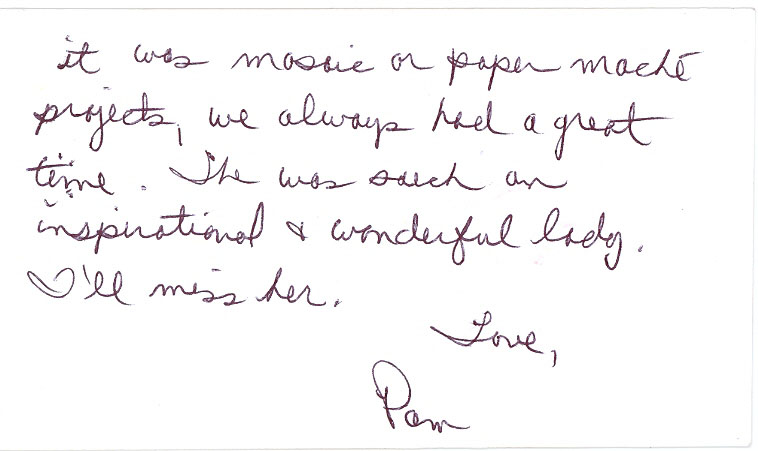 it was mosaic or paper maché
projects, we always had a great
time. She was such an
inspirational & wonderful lady.
I'll miss her.
Love,
Pam